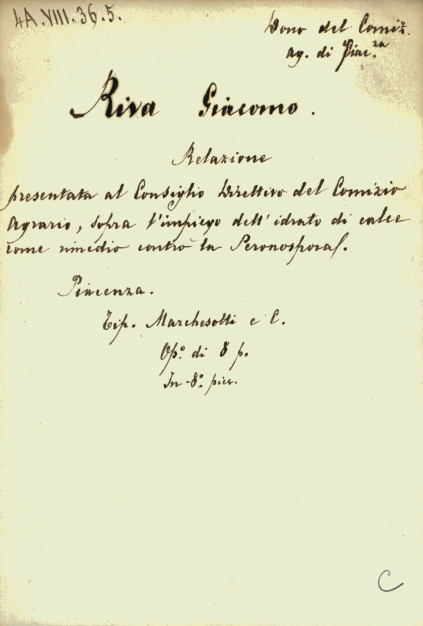 4A.VIII.36.5.
Dono del Comiz.
Ag. di Piac.za
Riva Giacomo.
Relazione
presentata al Consiglio Direttivo del Comizio
Agrario, sopra l'impiego dell'idrato di calce
come rimedio contro la Peronospora.
Piacenza.
Tip. Marchesotti e C.
Op.o di 8 p.
In-8.o picc.
C